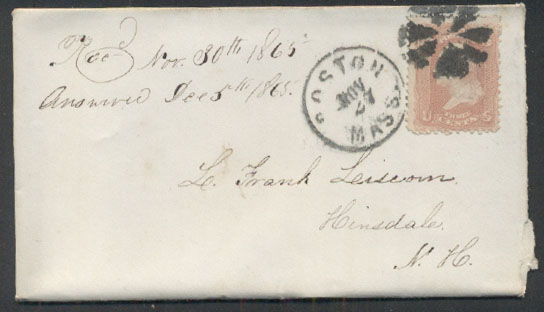 Rec'd Nov. 30th 1865
Answered Dec 5th 1865.
BOSTON
NOV
27
MASS.
U S
THREE
CENTS
L. Frank Liscom.
Hinsdale.
N. H.